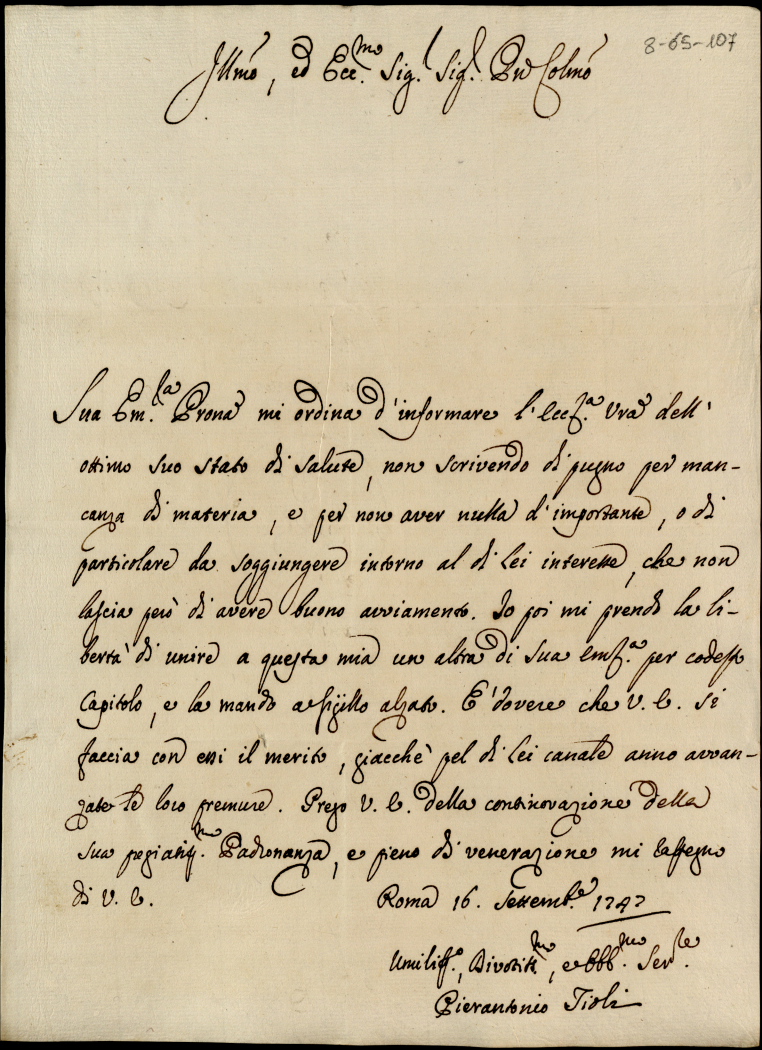 8-65-107
Illmo, ed Ecc.mo Sig.r Sig.r Pn Colmo
Sua Em.za Prona mi ordina d'informare l'Ecc.a Vra dell'
ottimo suo stato di salute, non scrivendo di pugno per man-
canza di materia, e per non aver nulla d'importante, o di
particolare da soggiungere intorno al di lei interesse, che non
lascia però di avere buono avviamento. Io poi mi prendo la li-
bertà di unire a questa mia un altra di Sua Em.a per codesto
Capitolo, e la mando a sigillo alzato. E' dovere che V. E. si
faccia con essi il merito, giacchè pel di lei canale anno avvan-
zate le loro premure. Prego V. E. della continovazione della
sua pregiatiss.ma Padronanza, e pieno di venerazione mi rassegno
di V. E.
Roma 16. Settemb.e 1747
Umiliss.o, Divotiss.mo, ed Obb.mo Ser.re
Pierantonio Tioli